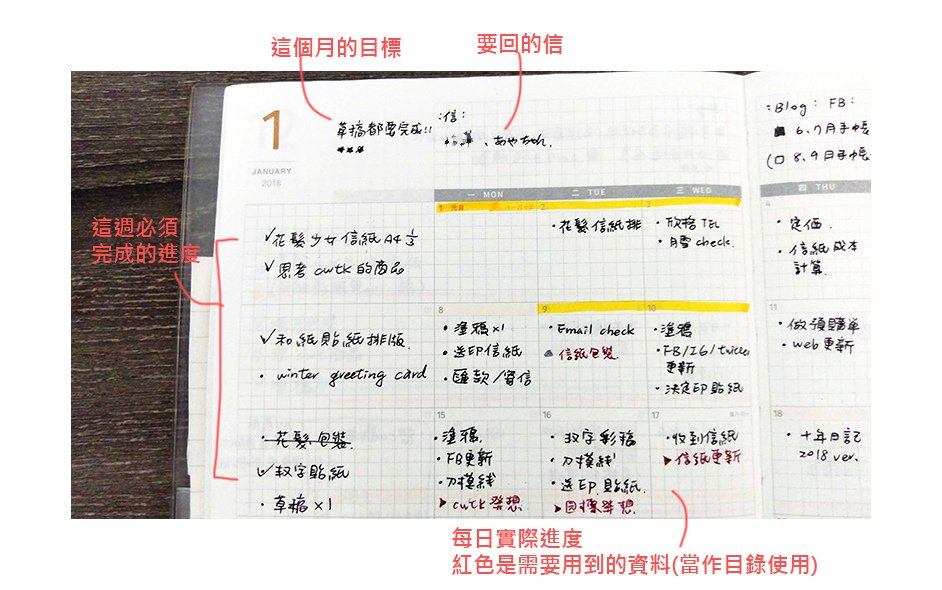 這個月的目標
要回的信
1
JANUARY
2018
草稿都要完成!!
:信:
、あやちゃん.
:Blog: FB:
6、7月手帳
(口 8、9月手帳
一 MON
二 TUE
三 WED
四 THU
這週必須
完成的進度
✓花髮少女信紙A4 1/3
✓思考 cwtk 的商品
1 元旦
2
・花髮信紙排
3
・欣格 TEL
・月雪 check.
4
・定価.
・信紙成本
計算.
✓和紙貼紙排版.
・winter greeting card
8
・塗鴉×1
・送印信紙
・匯款/寄信
9
・Email check
信紙包裝
10
・塗鴉
・FB/IG/twitter
更新
・決定印貼紙
11
・做預購單
・web更新
・花髮包裝
✓数字貼紙
・草稿×1
15
・塗鴉.
・FB更新
・刀模線
▶cwtk 発想
16
・数字彩稿
・刀模線
・送印.貼紙.
▶図標発想.
17
・收到信紙
▶信紙更新
18
・十年日記
2018 ver.
每日實際進度
紅色是需要用到的資料(當作目錄使用)